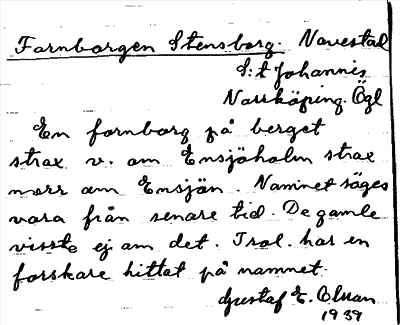 Fornborgen Stensborg. Navestad
S:t Johannis
Norrköping. Ögl
En fornborg på berget
strax v. om Ensjöholm strax
norr om Ensjön. Namnet säges
vara från senare tid. De gamle
visste ej om det. Trol. har en
forskare hittat på namnet.
Gustaf E. Olsson
1939